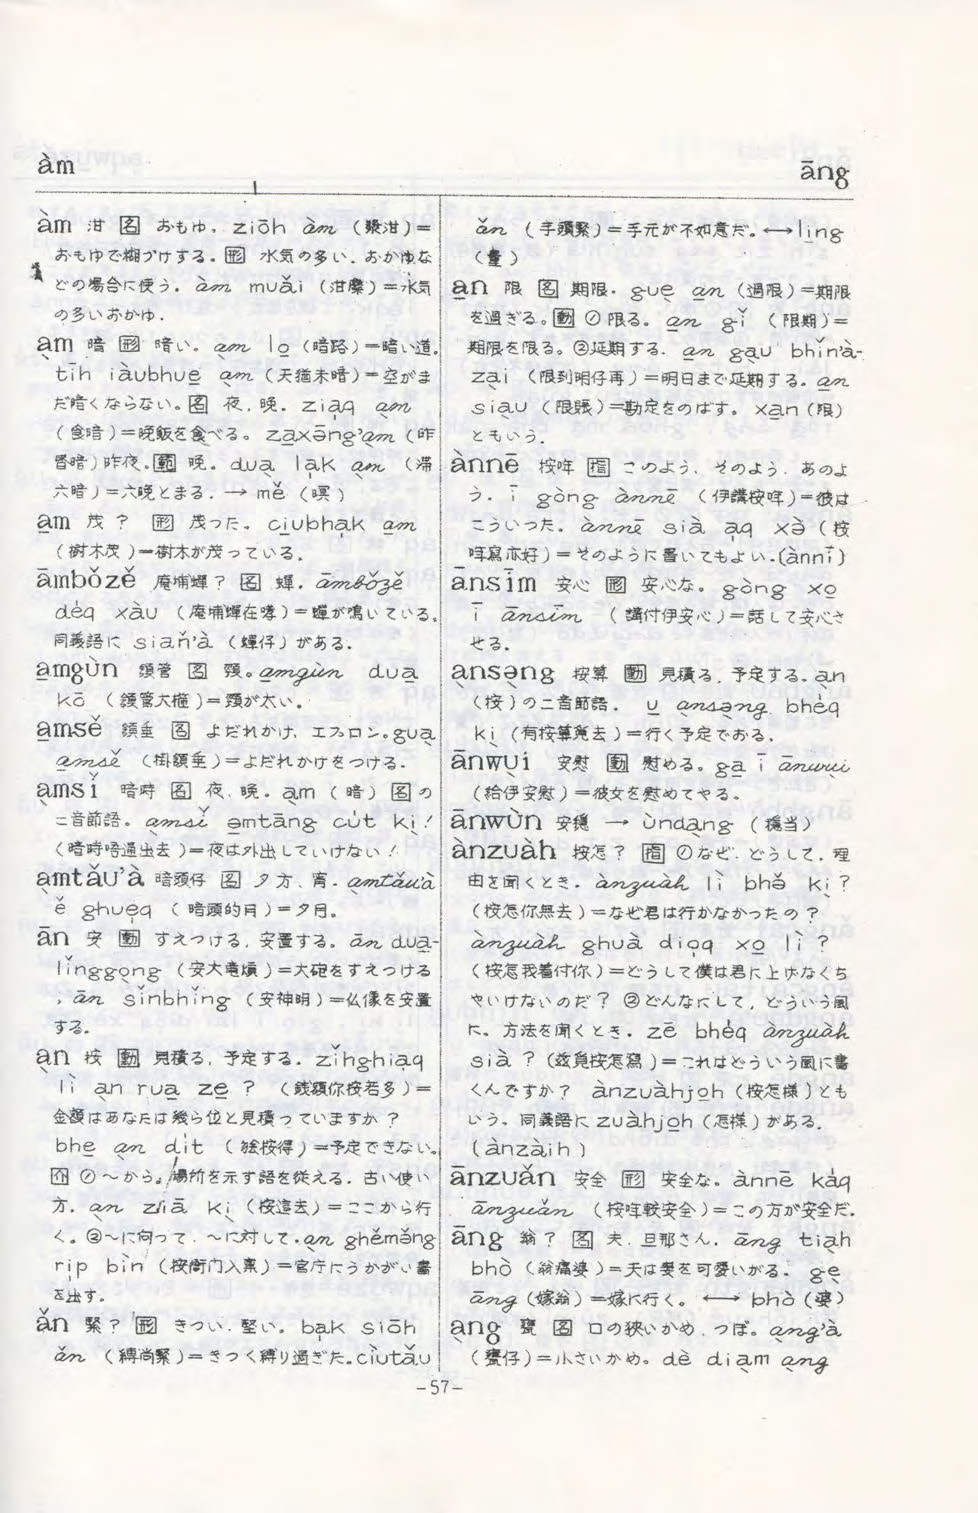 àm
āng
àm 泔 名 おもゆ。ziōh àm (漿泔)=
おもゆで糊づけする。形 水気の多い.おかゆな
どの場合に使う. àm muǎi (泔糜)=水気
の多いおかゆ.
a̱m 暗 形 暗い。a̱m lo̱ (暗路)=暗い道.
tīh iàubhue̱ a̱m (天猶未暗)=空がま
だ暗くならない。名 夜.晩. ziaq a̱m
(食暗)=晩飯を食べる。zaxāng'a̱m (昨
昏暗)昨夜。範 晩. dua̱ la̍k a̱m (滞
六暗)=六晩とまる. → mě (暝)
a̱m 茂? 形 茂った。ciubhak a̱m
(樹木茂)=樹木が茂っている.
āmbǒzě 庵埔蟬? 名 蟬. āmbǒzě
dėq xàu (庵埔蟬在哮)=蟬が鳴いている。
同義語に siǎn'à (蟬仔)がある.
a̱mgùn 頷管 名 頸。a̱mgùn dua̱
kō (頷管大箍)=頸が太い。
a̱msě 頷垂 名 よだれかけ.エプロン。gua̱
a̱msě (掛頷垂)=よだれかけをつける.
a̱msǐ 暗時 名 夜.晩. a̱m (暗) 名 の
二音節語。a̱msǐ a̱mtāng cu̍t ki̱!
(暗時唔通出去)=夜は外出していけない!
a̱mtǎu'à 暗頭仔 名 夕方.宵. a̱mtǎu'à
ě ghue̍q (暗頭的月)=夕月。
ān 安 動 すえつける.安置する。ān dua̱-
lǐnggo̱ng (安大竜熕)=大砲をすえつける
, ān sǐnbhǐng (安神明)=仏像を安置
する.
a̱n 按 動 見積る.予定する. zǐhghiaq
lì a̱n rua̱ ze̱? (銭額你按若多)=
金額はあなたは幾ら位と見積っていますか?
bhe̱ a̱n di̍t (𣍐按得)=予定できない。
介 ①～から。場所を示す語を従える.古い使い
方. a̱n ziā ki̱ (按這去)=ここから行
く。②～に向って.～に対して. a̱n ghěmǎng
ri̍p bìn (按衙門入稟)=官庁にうかがい書
を出す.
ǎn 緊? 形 きつい.堅い. ba̍k siōh
ǎn (縛尚緊)=きつく縛り過ぎた。ciùtǎu
ǎn (手頭緊)=手元が不如意だ。←→lìng
(量)
a̱n 限 名 期限. gue̱ a̱n (過限)=期限
を過ぎる。動 ①限る. a̱n gǐ (限期)=
期限を限る。②延期する. a̱n ga̱u bhǐn'à-
za̱i (限到明仔再)=明日まで延期する。a̱n
sia̱u (限賬)=勘定をのばす. xa̱n (限)
ともいう.
ànnē 按哖 指 このよう.そのよう.あのよ
う. ī gòng ànnē (伊講按哖)=彼は
こういった. ànnē sià a̱q xà (按
哖寫亦好)=そのように書いてもよい.(ànnī)
ānsīm 安心 形 安心な. gòng xo̱
ī ānsīm (講付伊安心)=話して安心さ
せる.
a̱nsəng 按算 動 見積る.予定する. a̱n
(按)の二音節語. u̱ a̱nsəng bhėq
ki̱ (有按算覓去)=行く予定である.
ānwu̱i 安慰 動 慰める. ga̱ ī ānwu̱i
(給伊安慰)=彼女を慰めてやる.
ānwùn 安穏 → ùnda̱ng (穏当)
ànzuàh 按怎? 指 ①なぜ.どうして.理
由を聞くとき. ànzuàh lì bhə̌ ki̱?
(按怎你無去)=なぜ君は行かなかったの?
ànzuàh ghuà dioq xo̱ lì?
(按怎我着付你)=どうして僕は君に上げなくち
ゃいけないのだ? ②どんなにして.どういう風
に.方法を聞くとき. zē bhėq ànzuàh
sià? (玆覓按怎寫)=これはどういう風に書
くんですか? ànzuàhjo̱h (按怎様)とも
いう. 同義語に zuàhjo̱h (怎様)がある.
(ànzàih)
ānzuǎn 安全 形 安全な. ànnē káq
ānzuǎn (按哖較安全)=この方が安全だ.
āng 翁? 名 夫.旦那さん. āng tia̱h
bhò (翁痛婆)=夫は妻を可愛いがる. ge̱
āng (嫁翁)=嫁に行く。←→ bhò (婆)
a̱ng 甕 名 口の狭いかめ.つぼ。a̱ng'à
(甕仔)=小さいかめ。dè dia̱m a̱ng
-57-